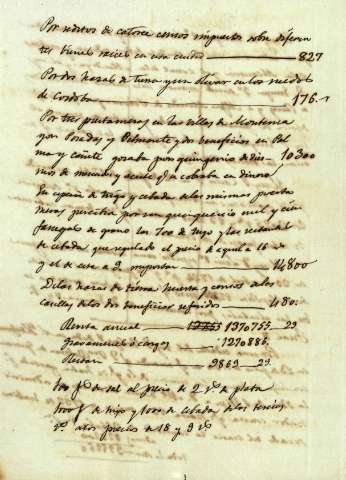 Por reditos de catorce censos impuestos sobre diferen
tes bienes raices en una ciudad 827
Por dos hazas de tierra y un olivar en los ruedos
de Cordoba 176.
Por tres prestameras en las villas de
y dos beneficios en Pal
ma y Cañete gozaba por quinquenio de diez
mos de menudos y aceite q.e cobraba en dinero 10300
En especie de trigo y cebada de las mismas presta
meras percibia por un quinquenio mil y cien
fanegas de grano las 700 de trigo y las restantes
de cebada que regulado el precio de aquel a 16 r.s
y el de esta a 9. importan 14800
De las hazas de tierra huerta y censos de los
casillas de los dos beneficios referidos 480.
Renta anual 1370755. 29
Gravamenes ó cargos 1270886.
Restan 9869. 29.
de sal al precio de 2 r.s de plata
de trigo y de cebada de los tercios
r.s a los precios de 18 y 9 r.s